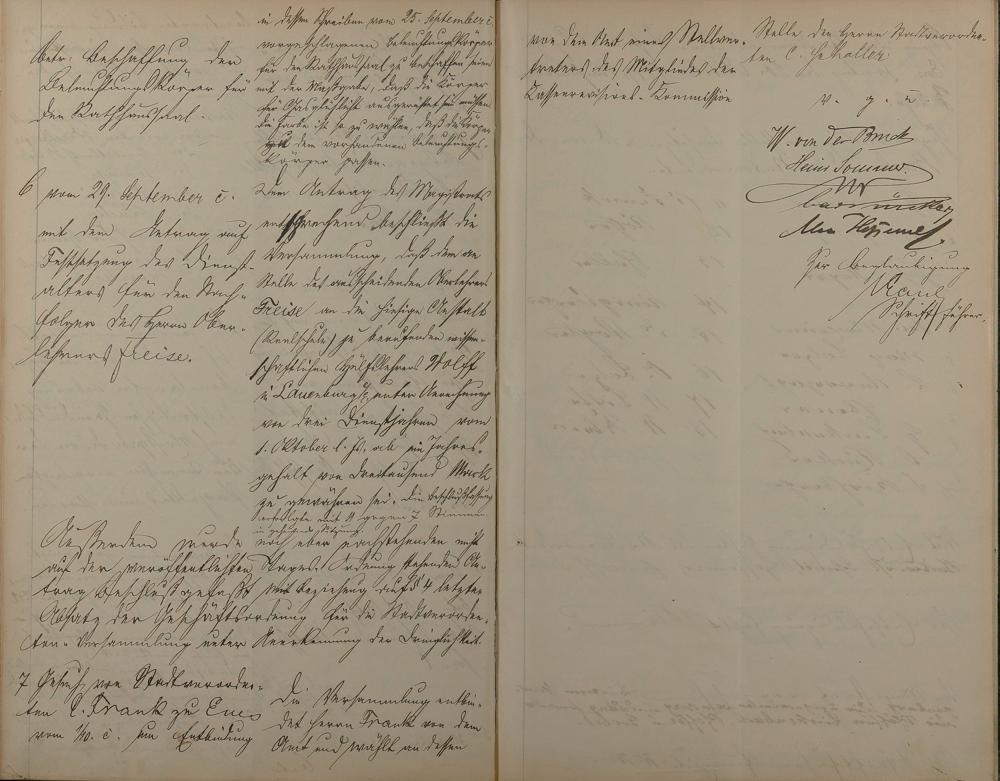 betr. Beschaffung der
Beleuchtungskörper für
den Rathhaussaal.
in dessen Schreiben vom 25. September c.
vorgeschlagenen Beleuchtungskörper
für den Rathhaussaal zu beschaffen seien
mit der Maßgabe, daß die Körper
für Gasglühlicht ausgerüstet sein müssen
die Farbe ist so zu wählen, daß die Körper
zu den vorhandenen Beleuchtungs-
körper passen.
6 vom 29. September c.
mit dem Antrag auf
Festsetzung des Dienst-
alters für den Nach-
folger des Herrn Ober-
lehrers Freise.
Dem Antrag des Magistrats
entsprechend beschließt die
Versammlung, daß dem an
Stelle des ausscheidenden Oberlehrers
Freise an die hiesige Anstalt
(Realschule) zu berufenden wissen-
schaftlichen Hülfslehrers Wolff
in Lauenburg unter Anrechnung
von drei Dienstjahren vom
1. Oktober c. Js. ab ein Jahres-
gehalt von Dreitausend Mark
zu gewähren sei. Die Beschlußfassung
erfolgte mit 9 gegen 7 Stimmen
in geheimer Sitzung.
Außerdem wurde noch über nachstehenden nicht
auf der veröffentlichten Tages Ordnung stehenden An-
trag Beschluß gefaßt mit Beziehung auf § 4 letzter
Absatz der Geschäftsordnung für die Stadtverordne-
ten-Versammlung unter Anerkennung der Dringlichkeit.
7 Gesuch von Stadtverordne-
ten C. Frank zu Ems
vom 1/10. c. um Entbindung
Die Versammlung entbin-
det Herrn Frank von dem
Amt und wählt an dessen
von dem Amt eines Stellver-
treters des Mitgliedes der
Kassenrevisions-Kommission
Stelle den Herrn Stadtverordne-
ten C.
v. g. u.
W. von der Bruck
Heinr Sommer
Für Beglaubigung
Schriftführer.